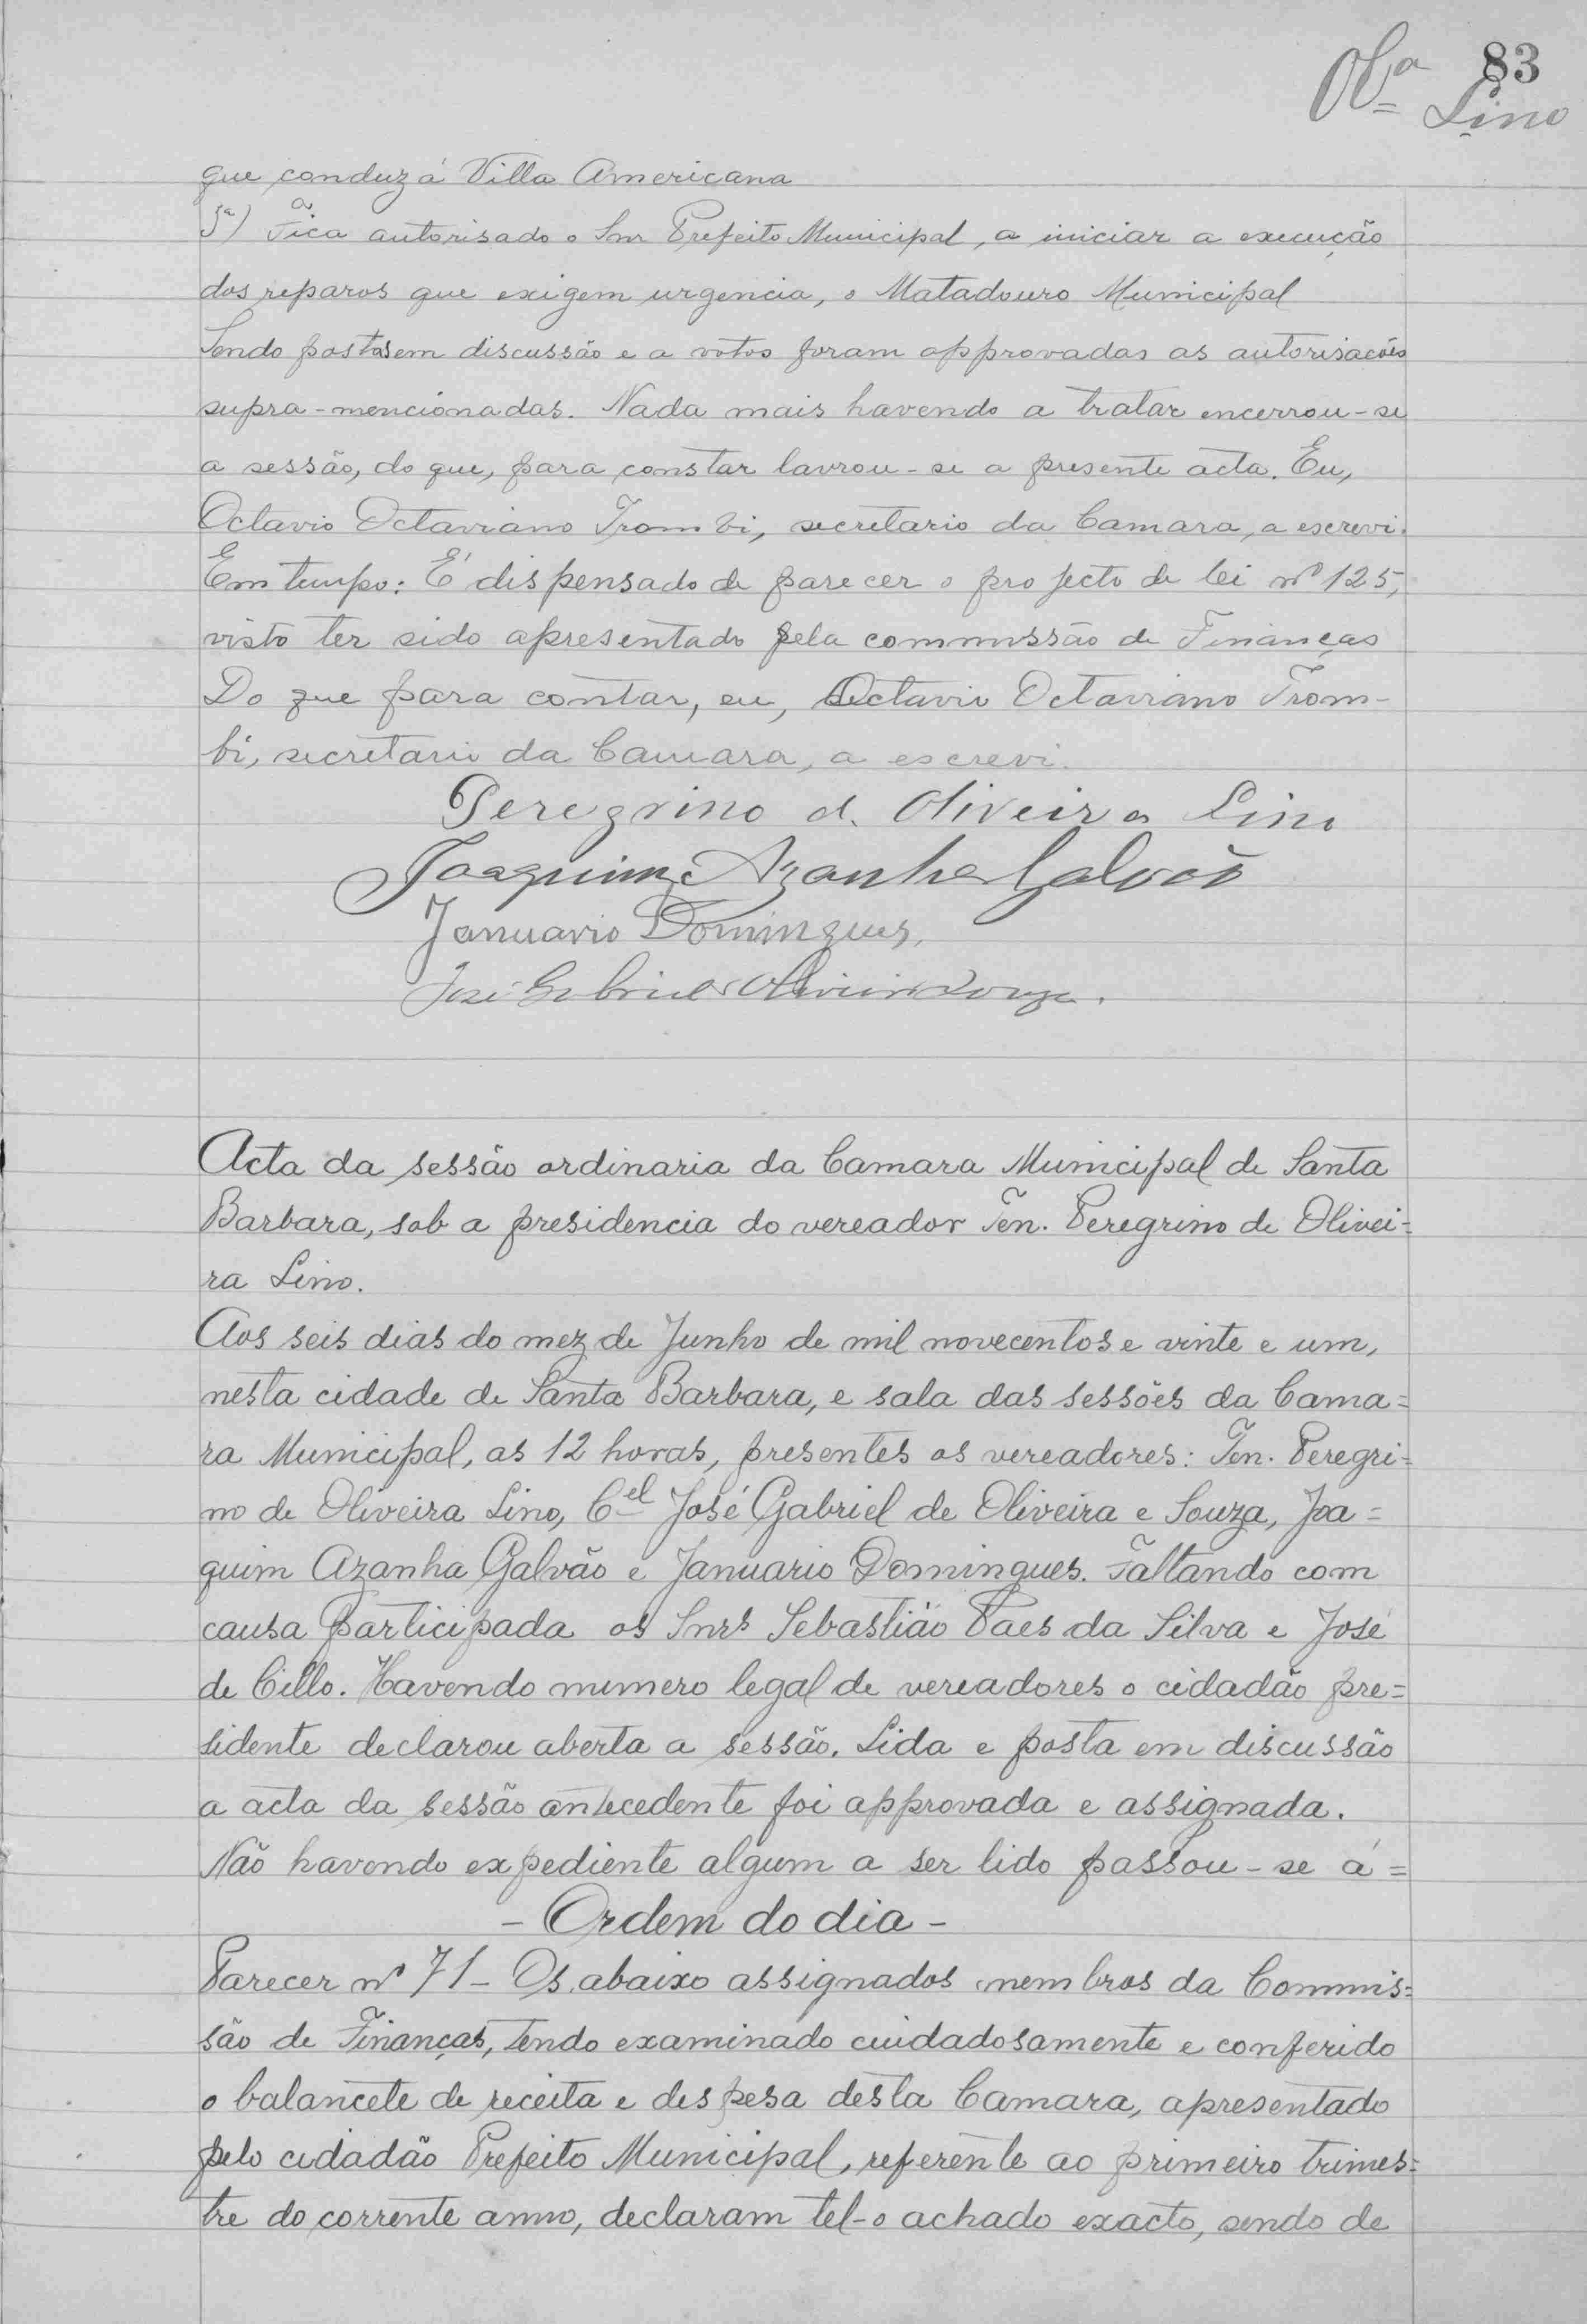 83
Olª Lino
que conduz á Villa Americana
3ª) Fica autorisado o Snr Prefeito Municipal, a iniciar a execução
dos reparos que exigem urgencia, o Matadouro Municipal
Sendo postas em discussão e a votos foram approvadas as autorisacões
supra-mencionadas. Nada mais havendo a tratar encerrou-se
a sessão, do que, para constar lavrou-se a presente acta. Eu,
Octavio Octaviano Trombi, secretario da Camara, a escrevi.
Em tempo: É dispensado de parecer o projecto de lei nº 125,
visto ter sido apresentado pela commissão de Finanças
Do que para contar, eu, Octavio Octaviano Trom-
bi, secretario da Camara, a escrevi.
Peregrino d. Oliveira Lino
Joaquim Azanha Galvão
Januario Domingues,
José Gabriel Oliveira Souza.
Acta da sessão ordinaria da Camara Municipal de Santa
Barbara, sob a presidencia do vereador Ten. Peregrino de Olivei=
ra Lino.
Aos seis dias do mez de Junho de mil novecentos e vinte e um,
nesta cidade de Santa Barbara, e sala das sessões da Cama=
ra Municipal, as 12 horas, presentes os vereadores: Ten. Peregri=
no de Oliveira Lino, Cel José Gabriel de Oliveira e Souza, Joa=
quim Azanha Galvão e Januario Domingues. Faltando com
causa participada os Snrs Sebastião Paes da Silva e José
de Cillo. Havendo numero legal de vereadores o cidadão pre=
sidente declarou aberta a sessão. Lida e posta em discussão
a acta da sessão antecedente foi approvada e assignada.
Não havendo expediente algum a ser lido passou-se á=
- Ordem do dia -
Parecer nº 71 - Os abaixo assignados membros da Commis=
são de Finanças, tendo examinado cuidadosamente e conferido
o balancete de receita e despesa desta Camara, apresentado
pelo cidadão Prefeito Municipal, referente ao primeiro trimes=
tre do corrente anno, declaram tel-o achado exacto, sendo de